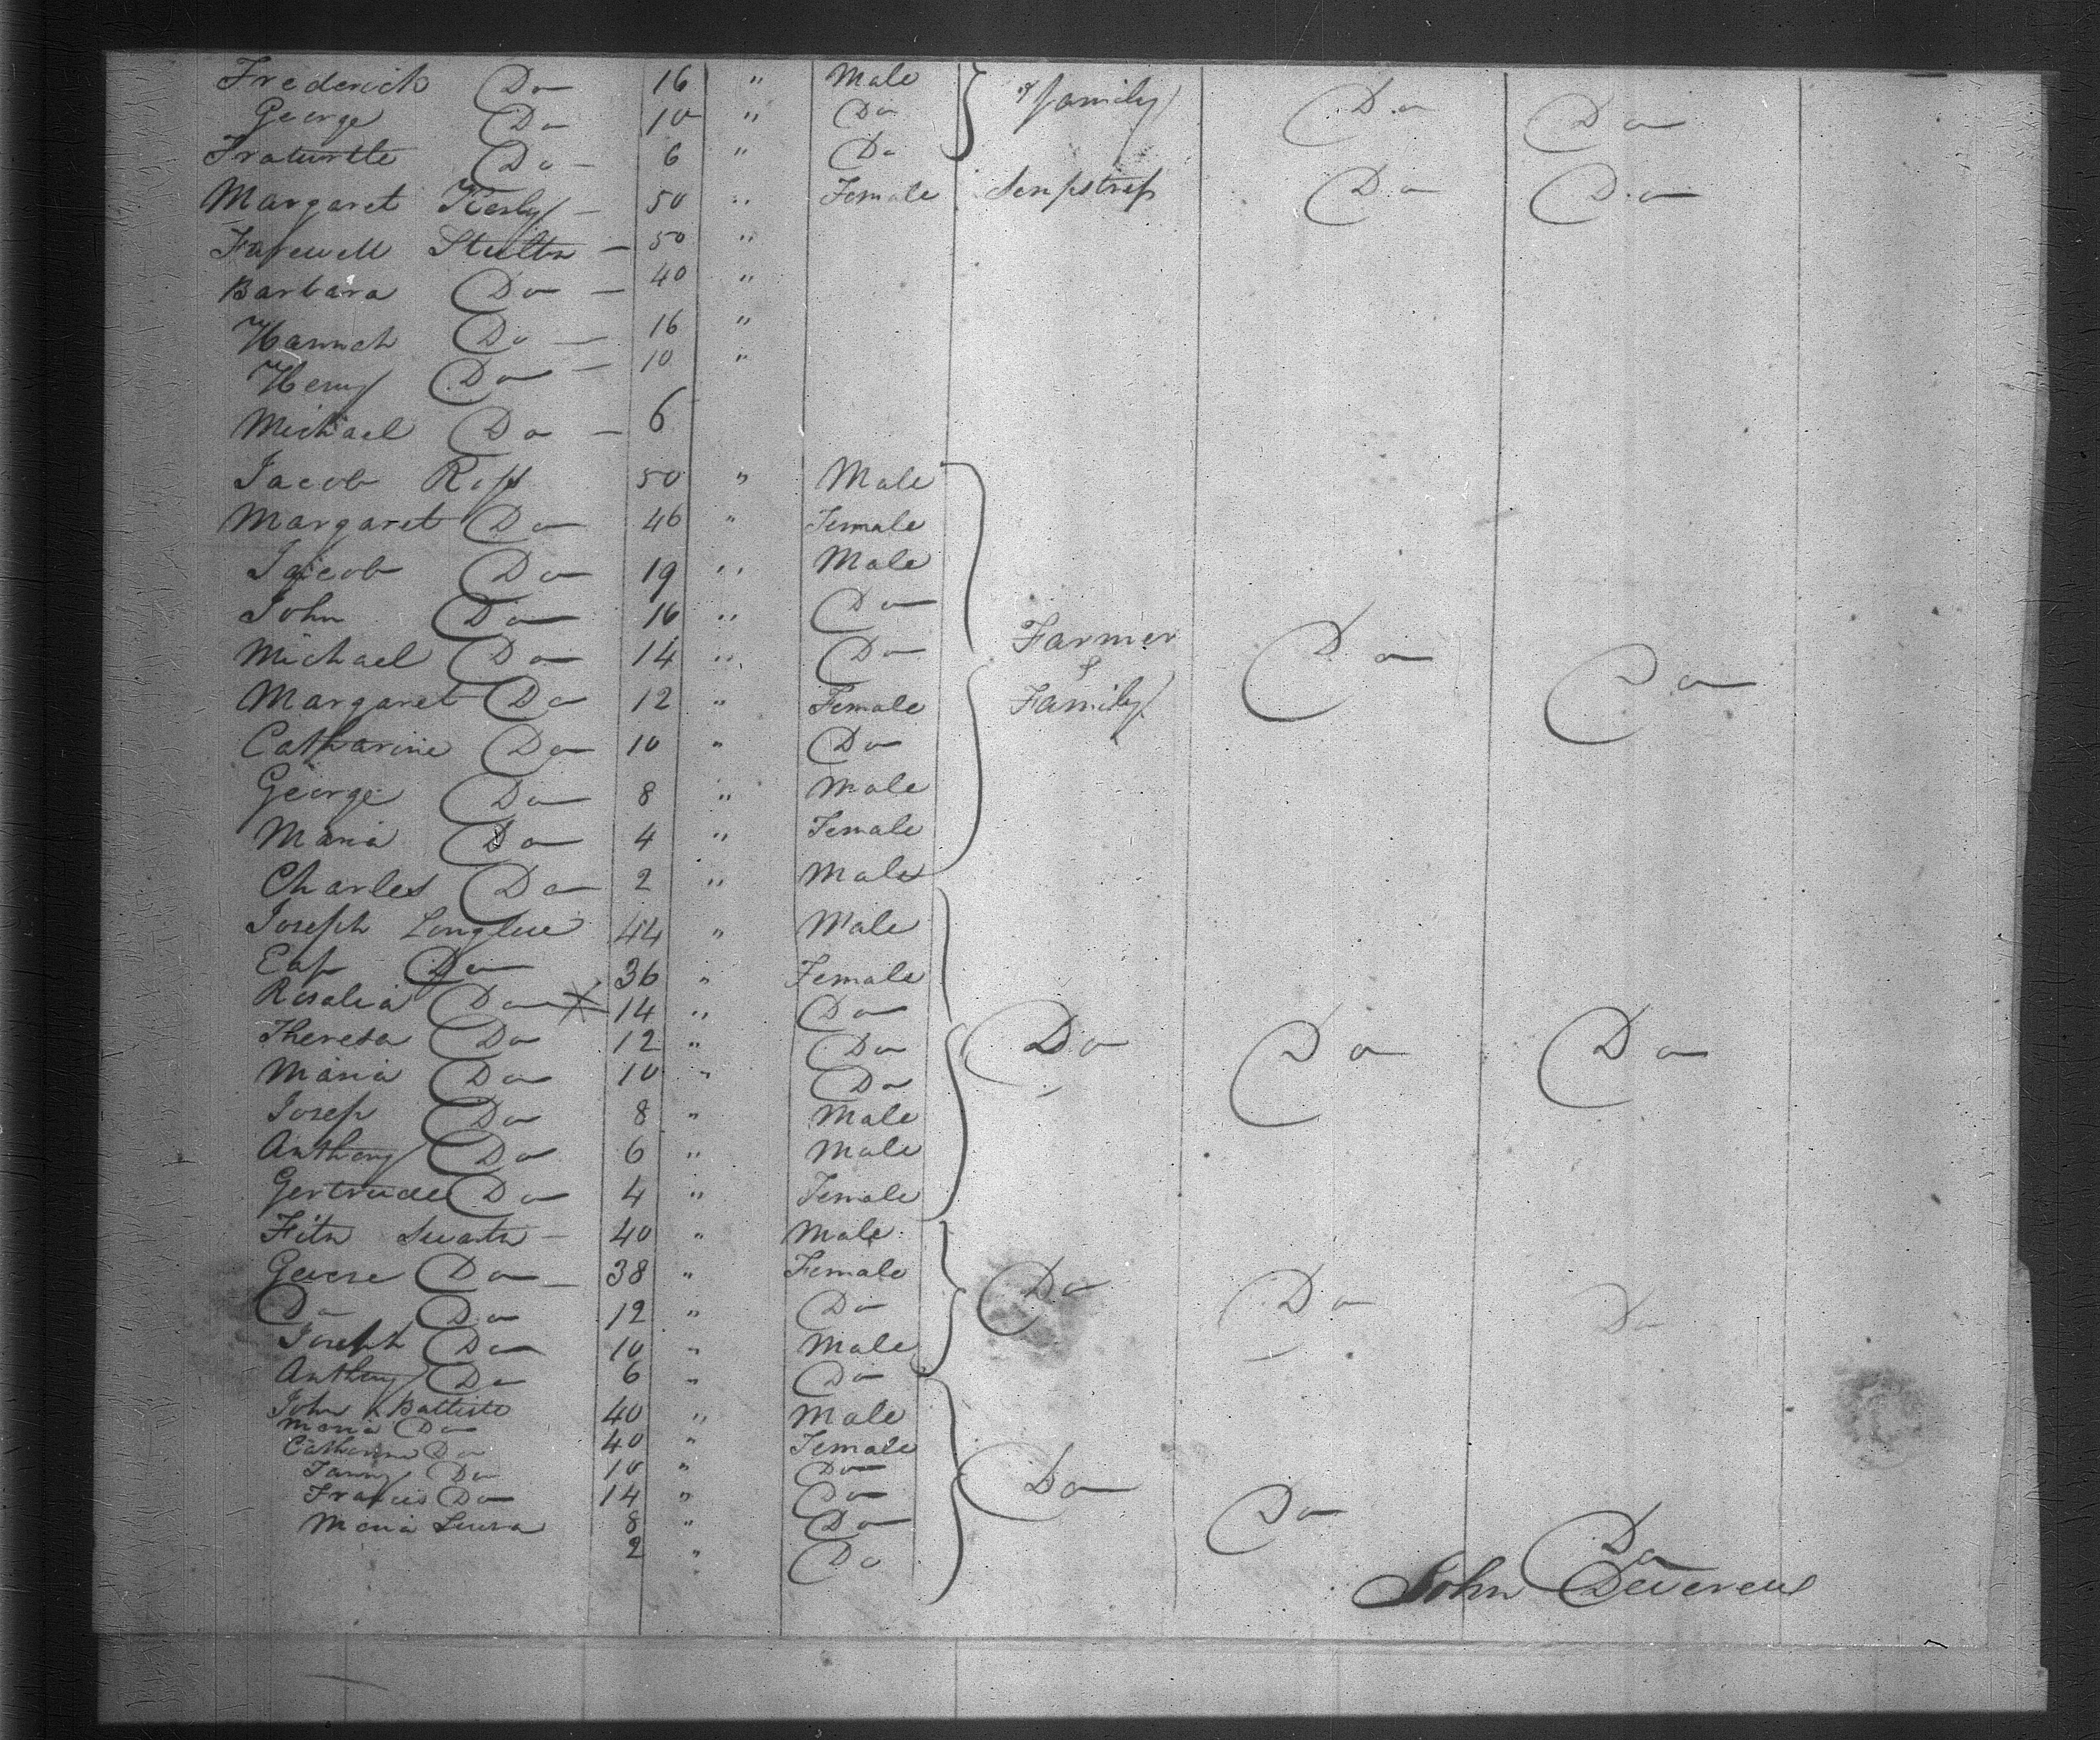 Frederick Do 16 " Male & family Do Do
George Do 10 " Do
Do 6 " Do
Margaret Kerly 50 " Female Sempstress Do Do
Farewell Stultn 50 "
Barbara Do 40 "
Hannah Do 16 "
Henry Do 10 "
Michael Do 6
Jacob Ross 50 " Male
Margaret Do 46 " Female
Jacob Do 19 " Male
John Do 16 " Do Farmer
Michael Do 14 " Do & Do Do
Margaret Do 12 " Female Family
Catharine Do 10 " Do
George Do 8 " Male
Maria Do 4 " Female
Charles Do 2 " Male
Joseph Longlue 44 " Male
Do 36 " Female
Rosalia Do X 14 " Do
Theresa Do 12 " Do Do Do Do
Maria Do 10 " Do
Josep Do 8 " Male
Anthony Do 6 " Male
Gertrude Do 4 " Female
40 " Male
Do 38 " Female Do Do Do
Do Do 12 " Do
Joseph Do 10 " Male
Anthony Do 6 " Do
John Battiste 40 " Male
Maria Do 40 " Female
Catherine Do 10 " Do
Fanny Do 14 " Do Do Do
Francis Do 8 " Do
Maria Luesa 2 " Do Do
John Devereux